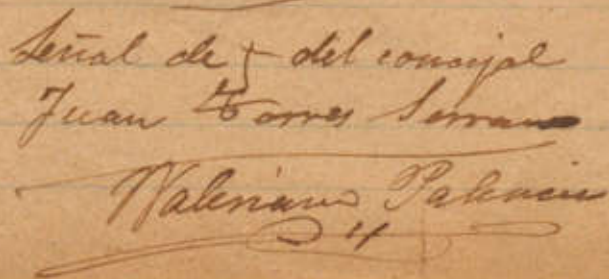 Señal de + del concejal
Juan Torres Serrano
Valeriano Palencia